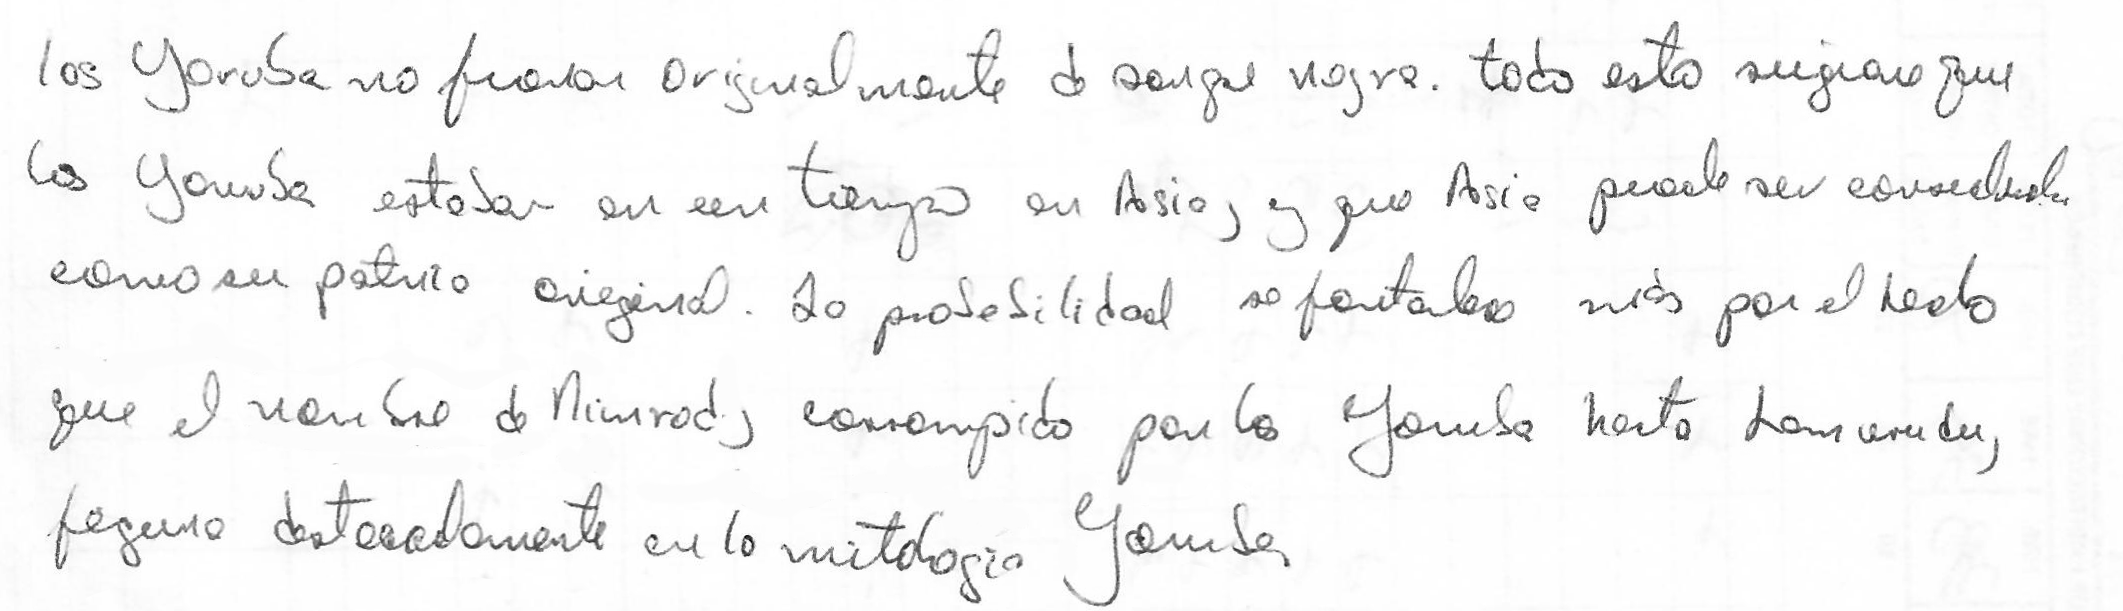 los Yoruba no fueron originalmente de sangre negra. todo esto sugiere que
los Yoruba estaban en un tiempo en Asia, y que Asia puede ser considerada
como su patria original. La probabilidad se fortalece más por el hecho
que el nombre de Nimrod, corrompido por los Yoruba hasta Lamurudu,
figura destacadamente en la mitologia Yoruba,